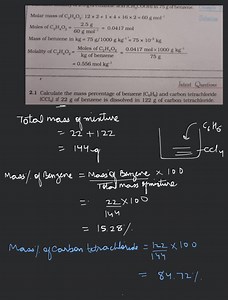 Molar mass of C₂H₄O₂: 12 × 2 + 1 × 4 + 16 × 2 = 60 g mol⁻¹
Moles of C₂H₄O₂ = 2.5 g / 60 g mol⁻¹ = 0.0417 mol
Mass of benzene in kg = 75 g/1000 g kg⁻¹ = 75 × 10⁻³ kg
Molality of C₂H₄O₂ = Moles of C₂H₄O₂ / kg of benzene = 0.0417 mol × 1000 g kg⁻¹ / 75 g
= 0.556 mol kg⁻¹
Intext Questions
2.1 Calculate the mass percentage of benzene (C₆H₆) and carbon tetrachloride
(CCl₄) if 22 g of benzene is dissolved in 122 g of carbon tetrachloride.
Total mass of mixture
= 22 + 122
= 144 g
C₆H₆
CCl₄
Mass % of Benzene = Mass of Benzene / Total mass of mixture × 100
= 22 / 144 × 100
= 15.28 %
Mass % of Carbon tetrachloride = 122 / 144 × 100
= 84.72 %